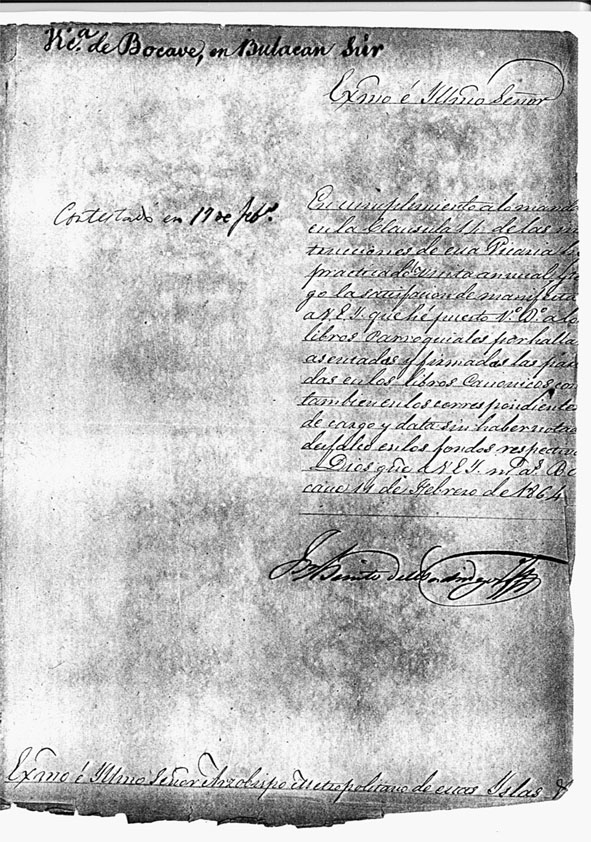 Vic.ª de Bocave, en Bulacan Sur
Exmo é Illmo Señor
Contestado en 17 de feb.º
En cumplimiento al manda
en la Clausula 14 de las in
trucciones de esa Vicaria he
practicado la Visita annual
go la satisfacion de manifesta
a V.E.I. que he puesto V.º B.º a lo
libros Parroquiales por halla
asentadas y firmadas las par
das en los libros Canonicos com
tambien en los correspondientes
de cargo y data sin haber nota
desfalco en los fondos respectivo
Dios gue. a V.E.I. m.ˢ a.ˢ Bo
caue 14 de Febrero de 1864
Fr. Benito de
Exmo é Illmo Señor Arzobispo Metropolitano de estas Islas &